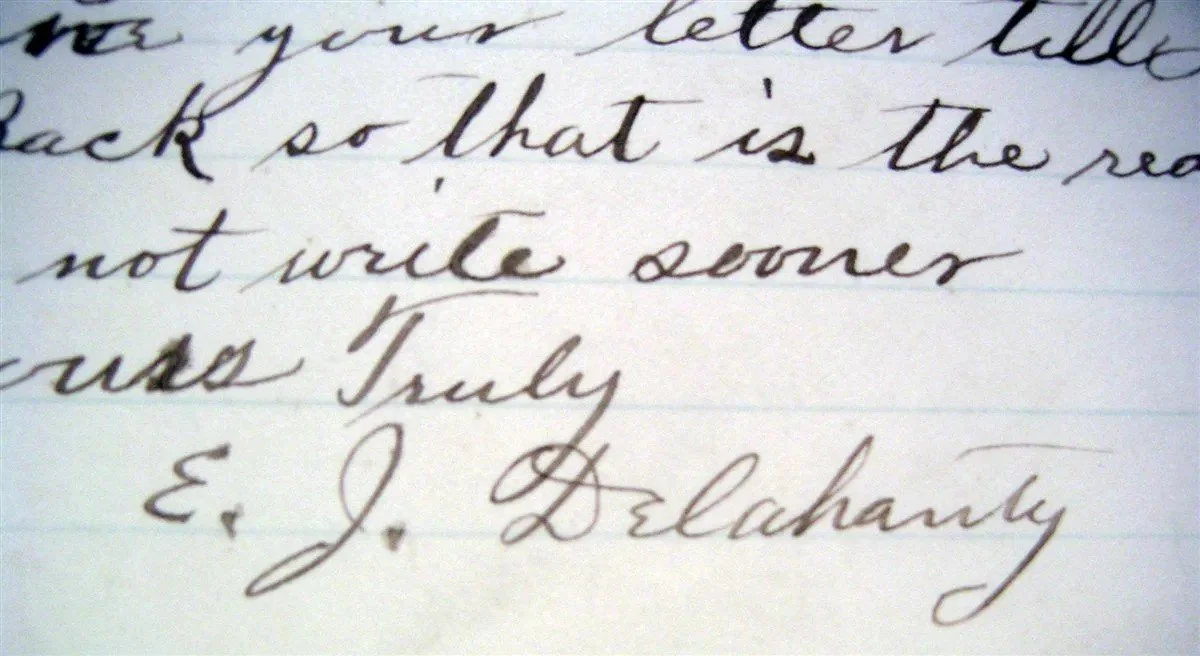 your letter till
Back so that is the rea
not write sooner
Truly
E. J. Delahanty